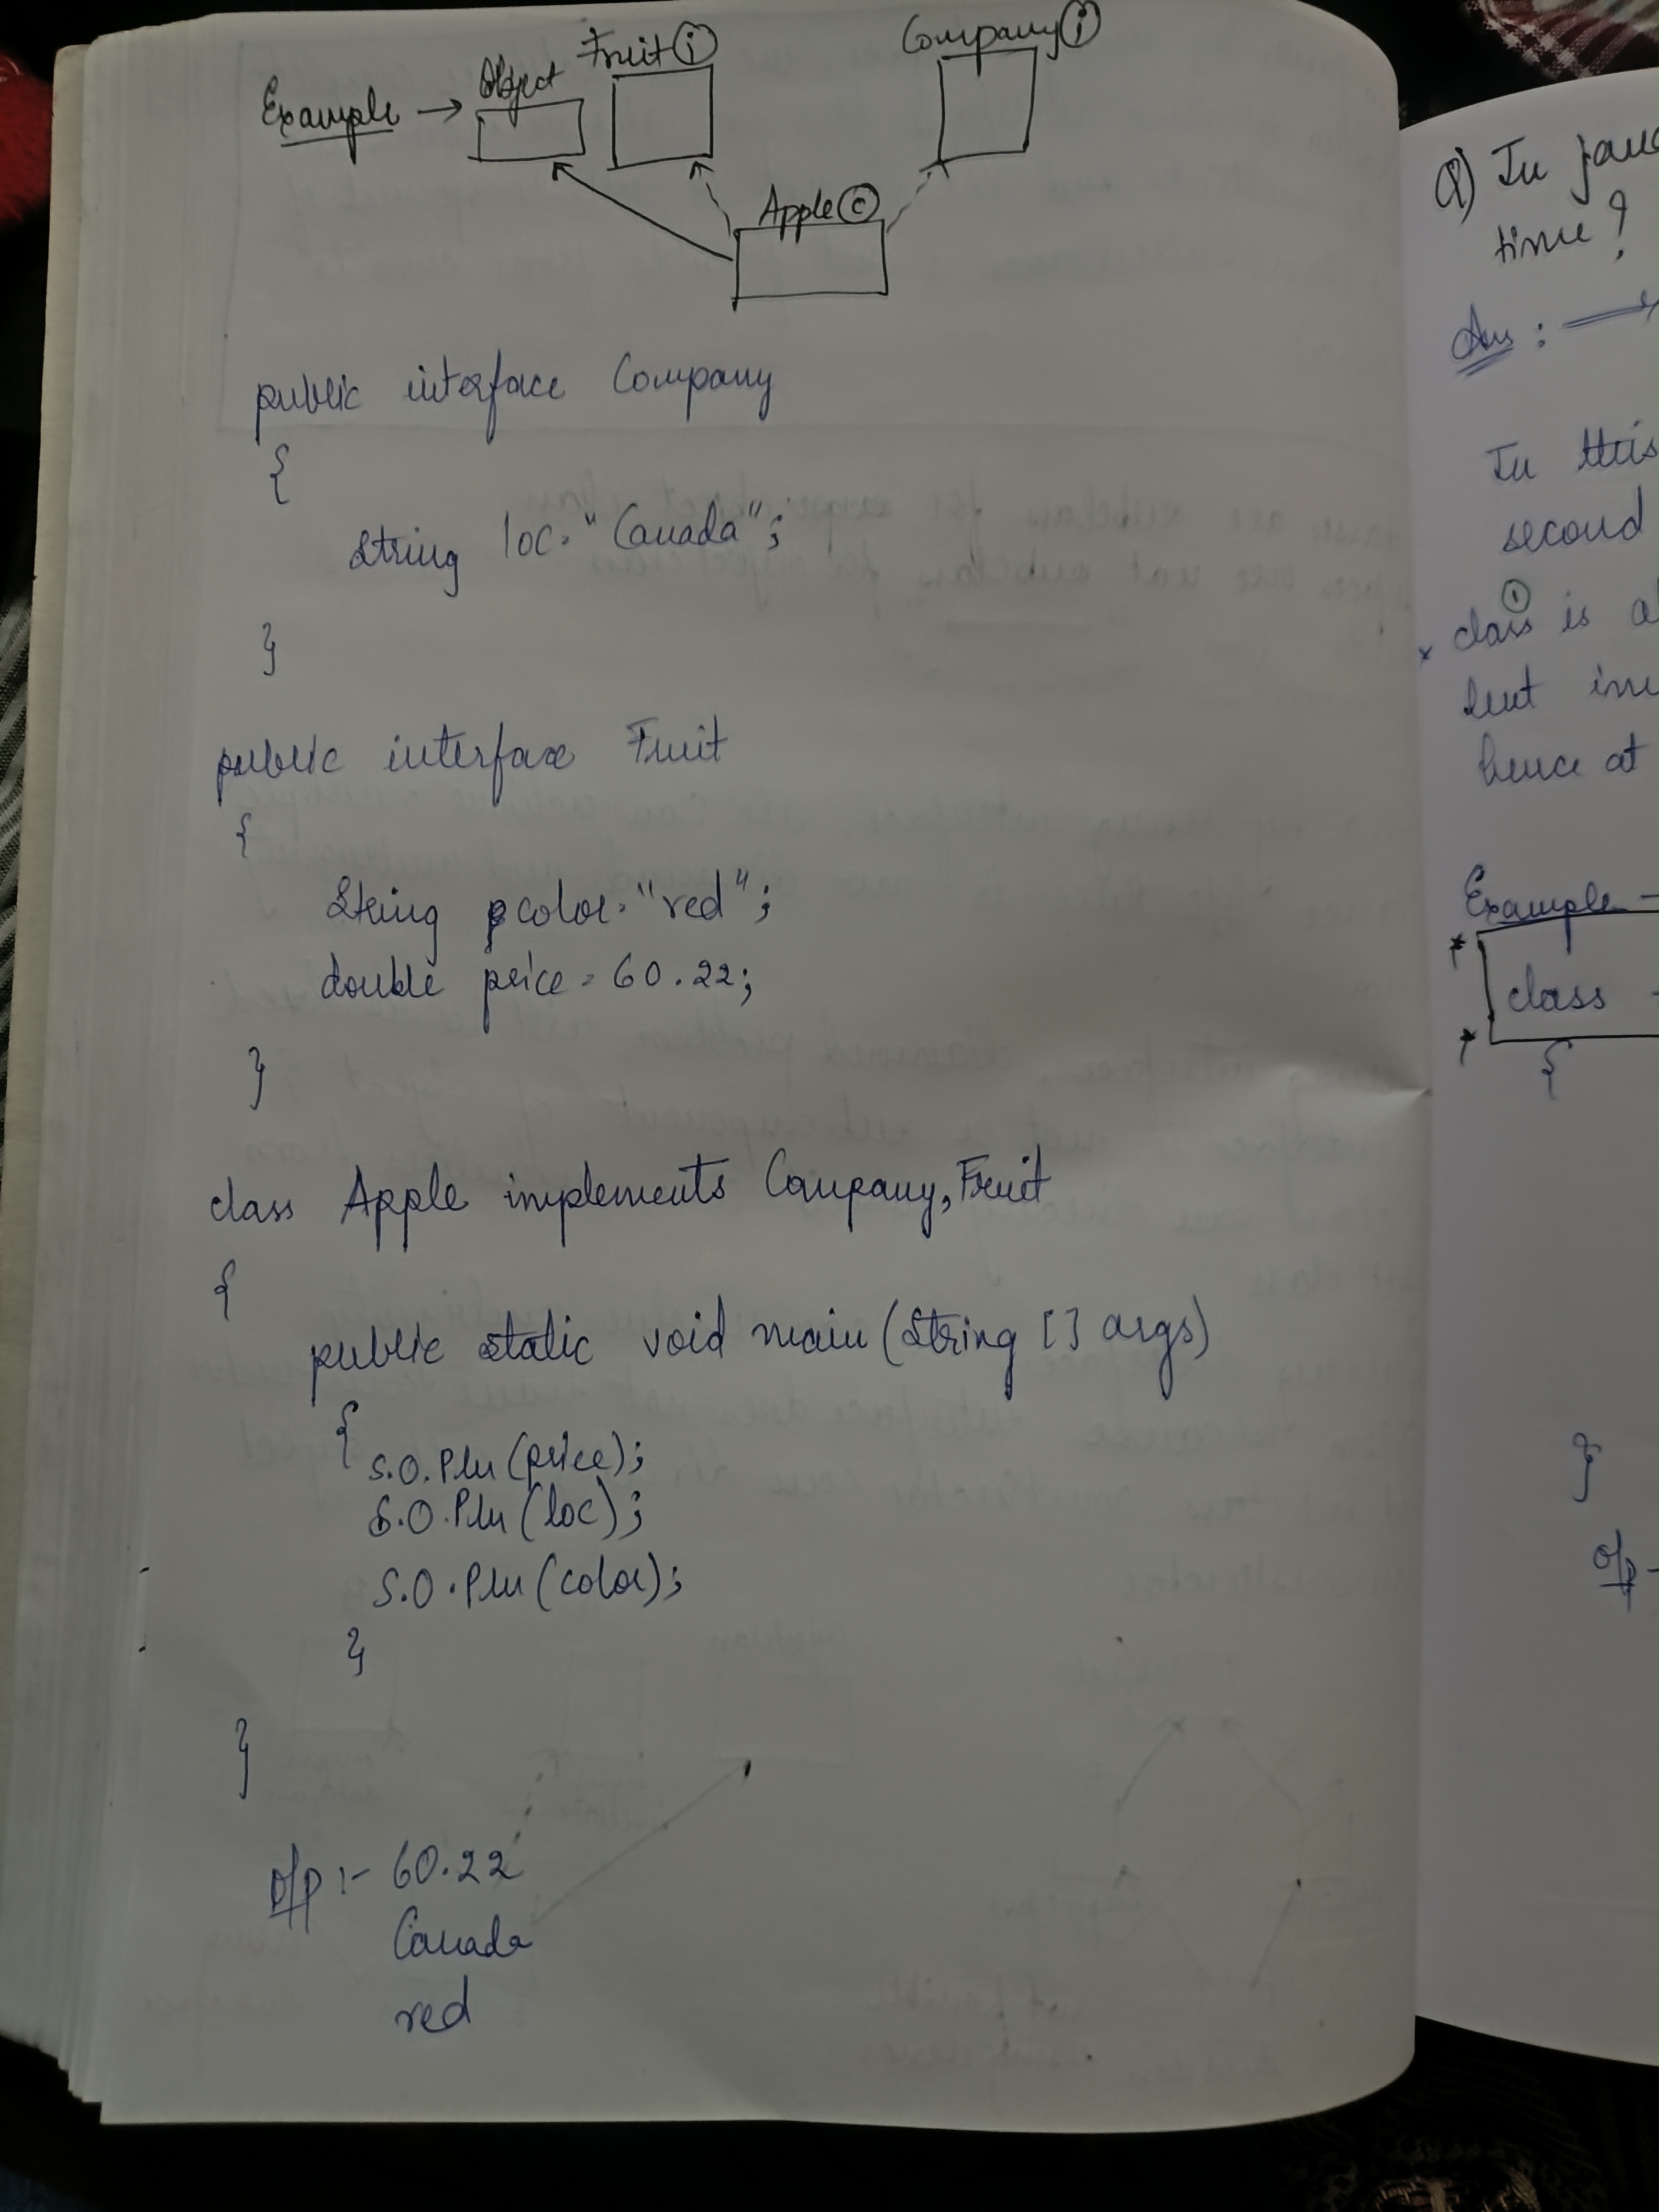 Example → Object Fruit i Company i
Apple c
public interface Company
{
String loc = "Canada";
}
public interface Fruit
{
String color = "red";
double price = 60.22;
}
class Apple implements Company, Fruit
{
public static void main (String [] args)
{
S.O.Pln (price);
S.O.Pln (loc);
S.O.Pln (color);
}
}
o/p :- 60.22
Canada
red
Q) In
time?
Ans :
In this
second
1
class is
hence at
Example
class
{
}
o/p -